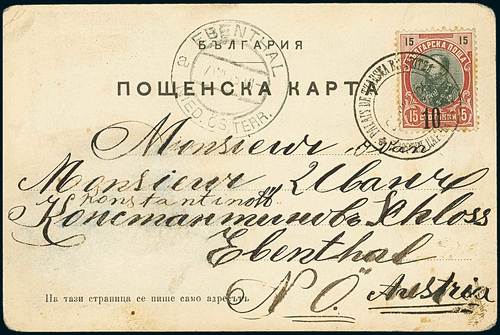 БЪЛГАРИЯ
ПОЩЕНСКА КАРТА
EBENTHAL
NIED. ÖSTERR.
15 15
БЪЛГАРСКА ПОЩА
10
15 СТОТИНКИ 15
PALAIS DE
Monsieur
Monsieur Иванъ
Konstantinoff
Константиновъ Schloss
Ebenthal
N. Ö. Austria
На тази страница се пише само адресътъ